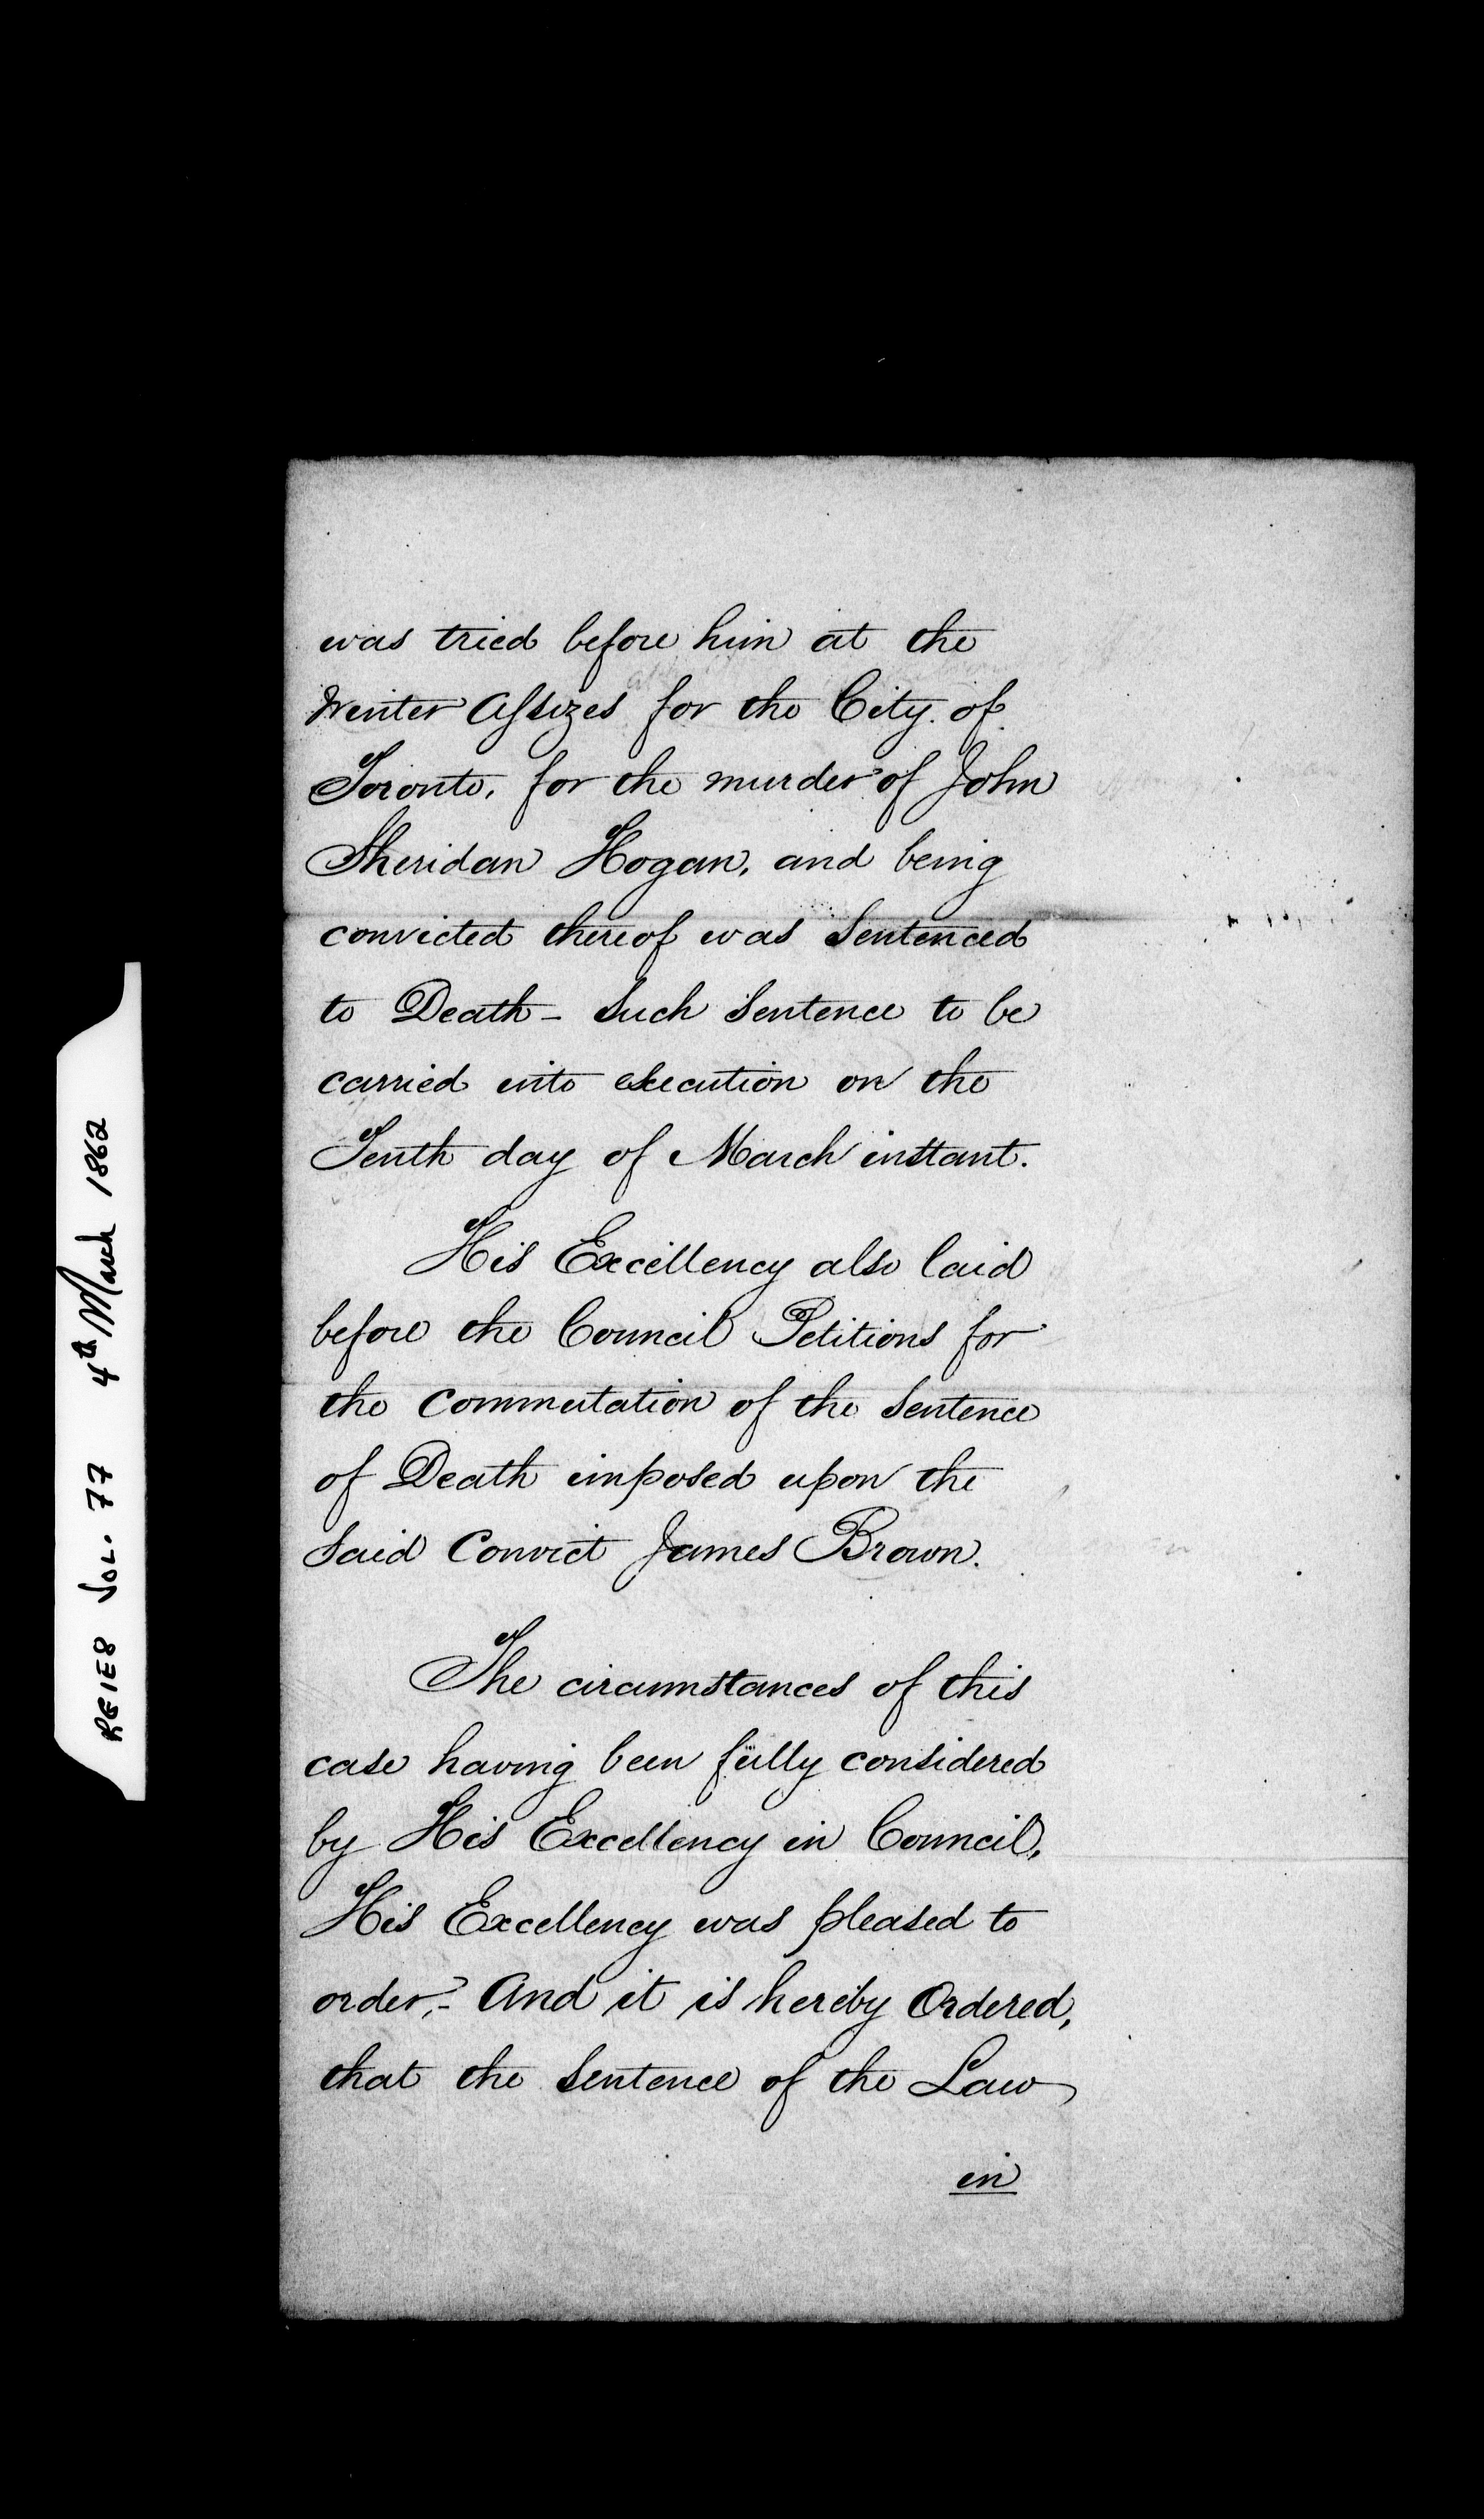 was tried before him at the
Winter Assizes for the City of
Toronto, for the murder of John
Sheridan Hogan, and being
convicted thereof was Sentenced
to Death – Such Sentence to be
carried into execution on the
Tenth day of March instant.
His Excellency also laid
before the Council Petitions for
the Commutation of the Sentence
of Death imposed upon the
Said Convict James Brown.
The circumstances of this
case having been fully considered
by His Excellency in Council,
His Excellency was pleased to
order, – And it is hereby Ordered,
that the Sentence of the Law
in
RG1E8 VOL. 77 4th March 1862